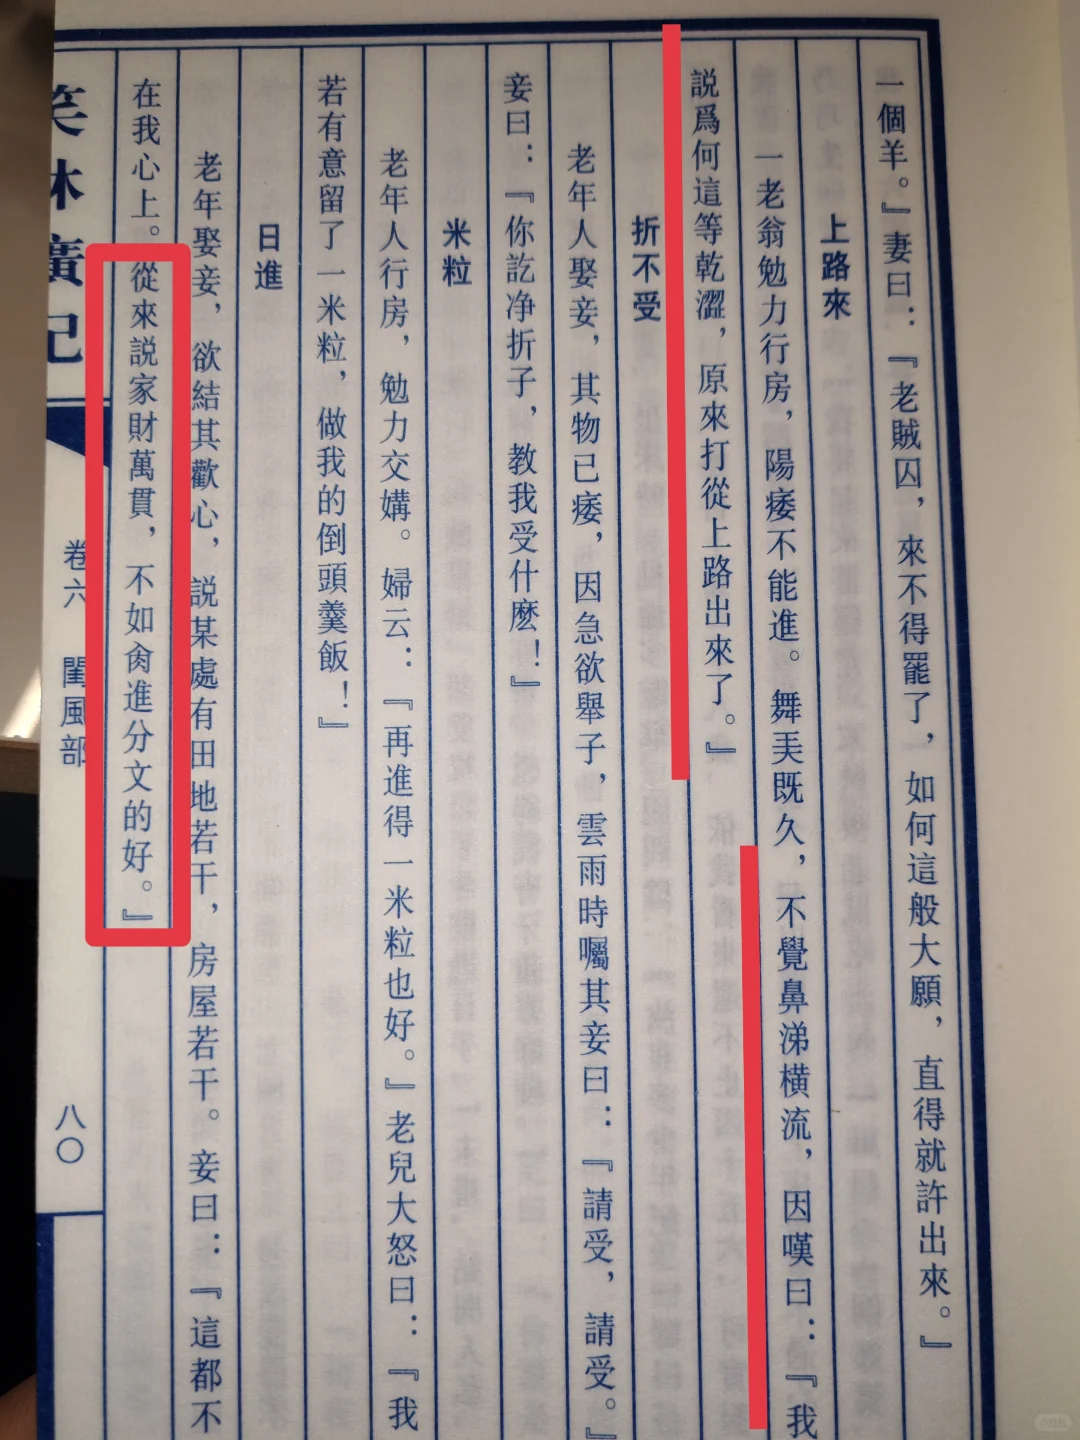 一個羊。』妻曰：『老賊囚，來不得罷了，如何這般大願，直得就許出來。』
上路來
一老翁勉力行房，陽痿不能進。舞美既久，不覺鼻涕橫流，因嘆曰：『我
説爲何這等乾澀，原來打從上路出來了。』
折不受
老年人娶妾，其物已痿，因急欲舉子，雲雨時囑其妾曰：『請受，請受。』
妾曰：『你訖净折子，教我受什麽！』
米粒
老年人行房，勉力交媾。婦云：『再進得一米粒也好。』老兒大怒曰：『我
若有意留了一米粒，做我的倒頭羹飯！』
日進
老年娶妾，欲結其歡心，説某處有田地若干，房屋若干。妾曰：『這都不
在我心上。從來説家財萬貫，不如肏進分文的好。』
笑林廣記
卷六 閨風部
八〇